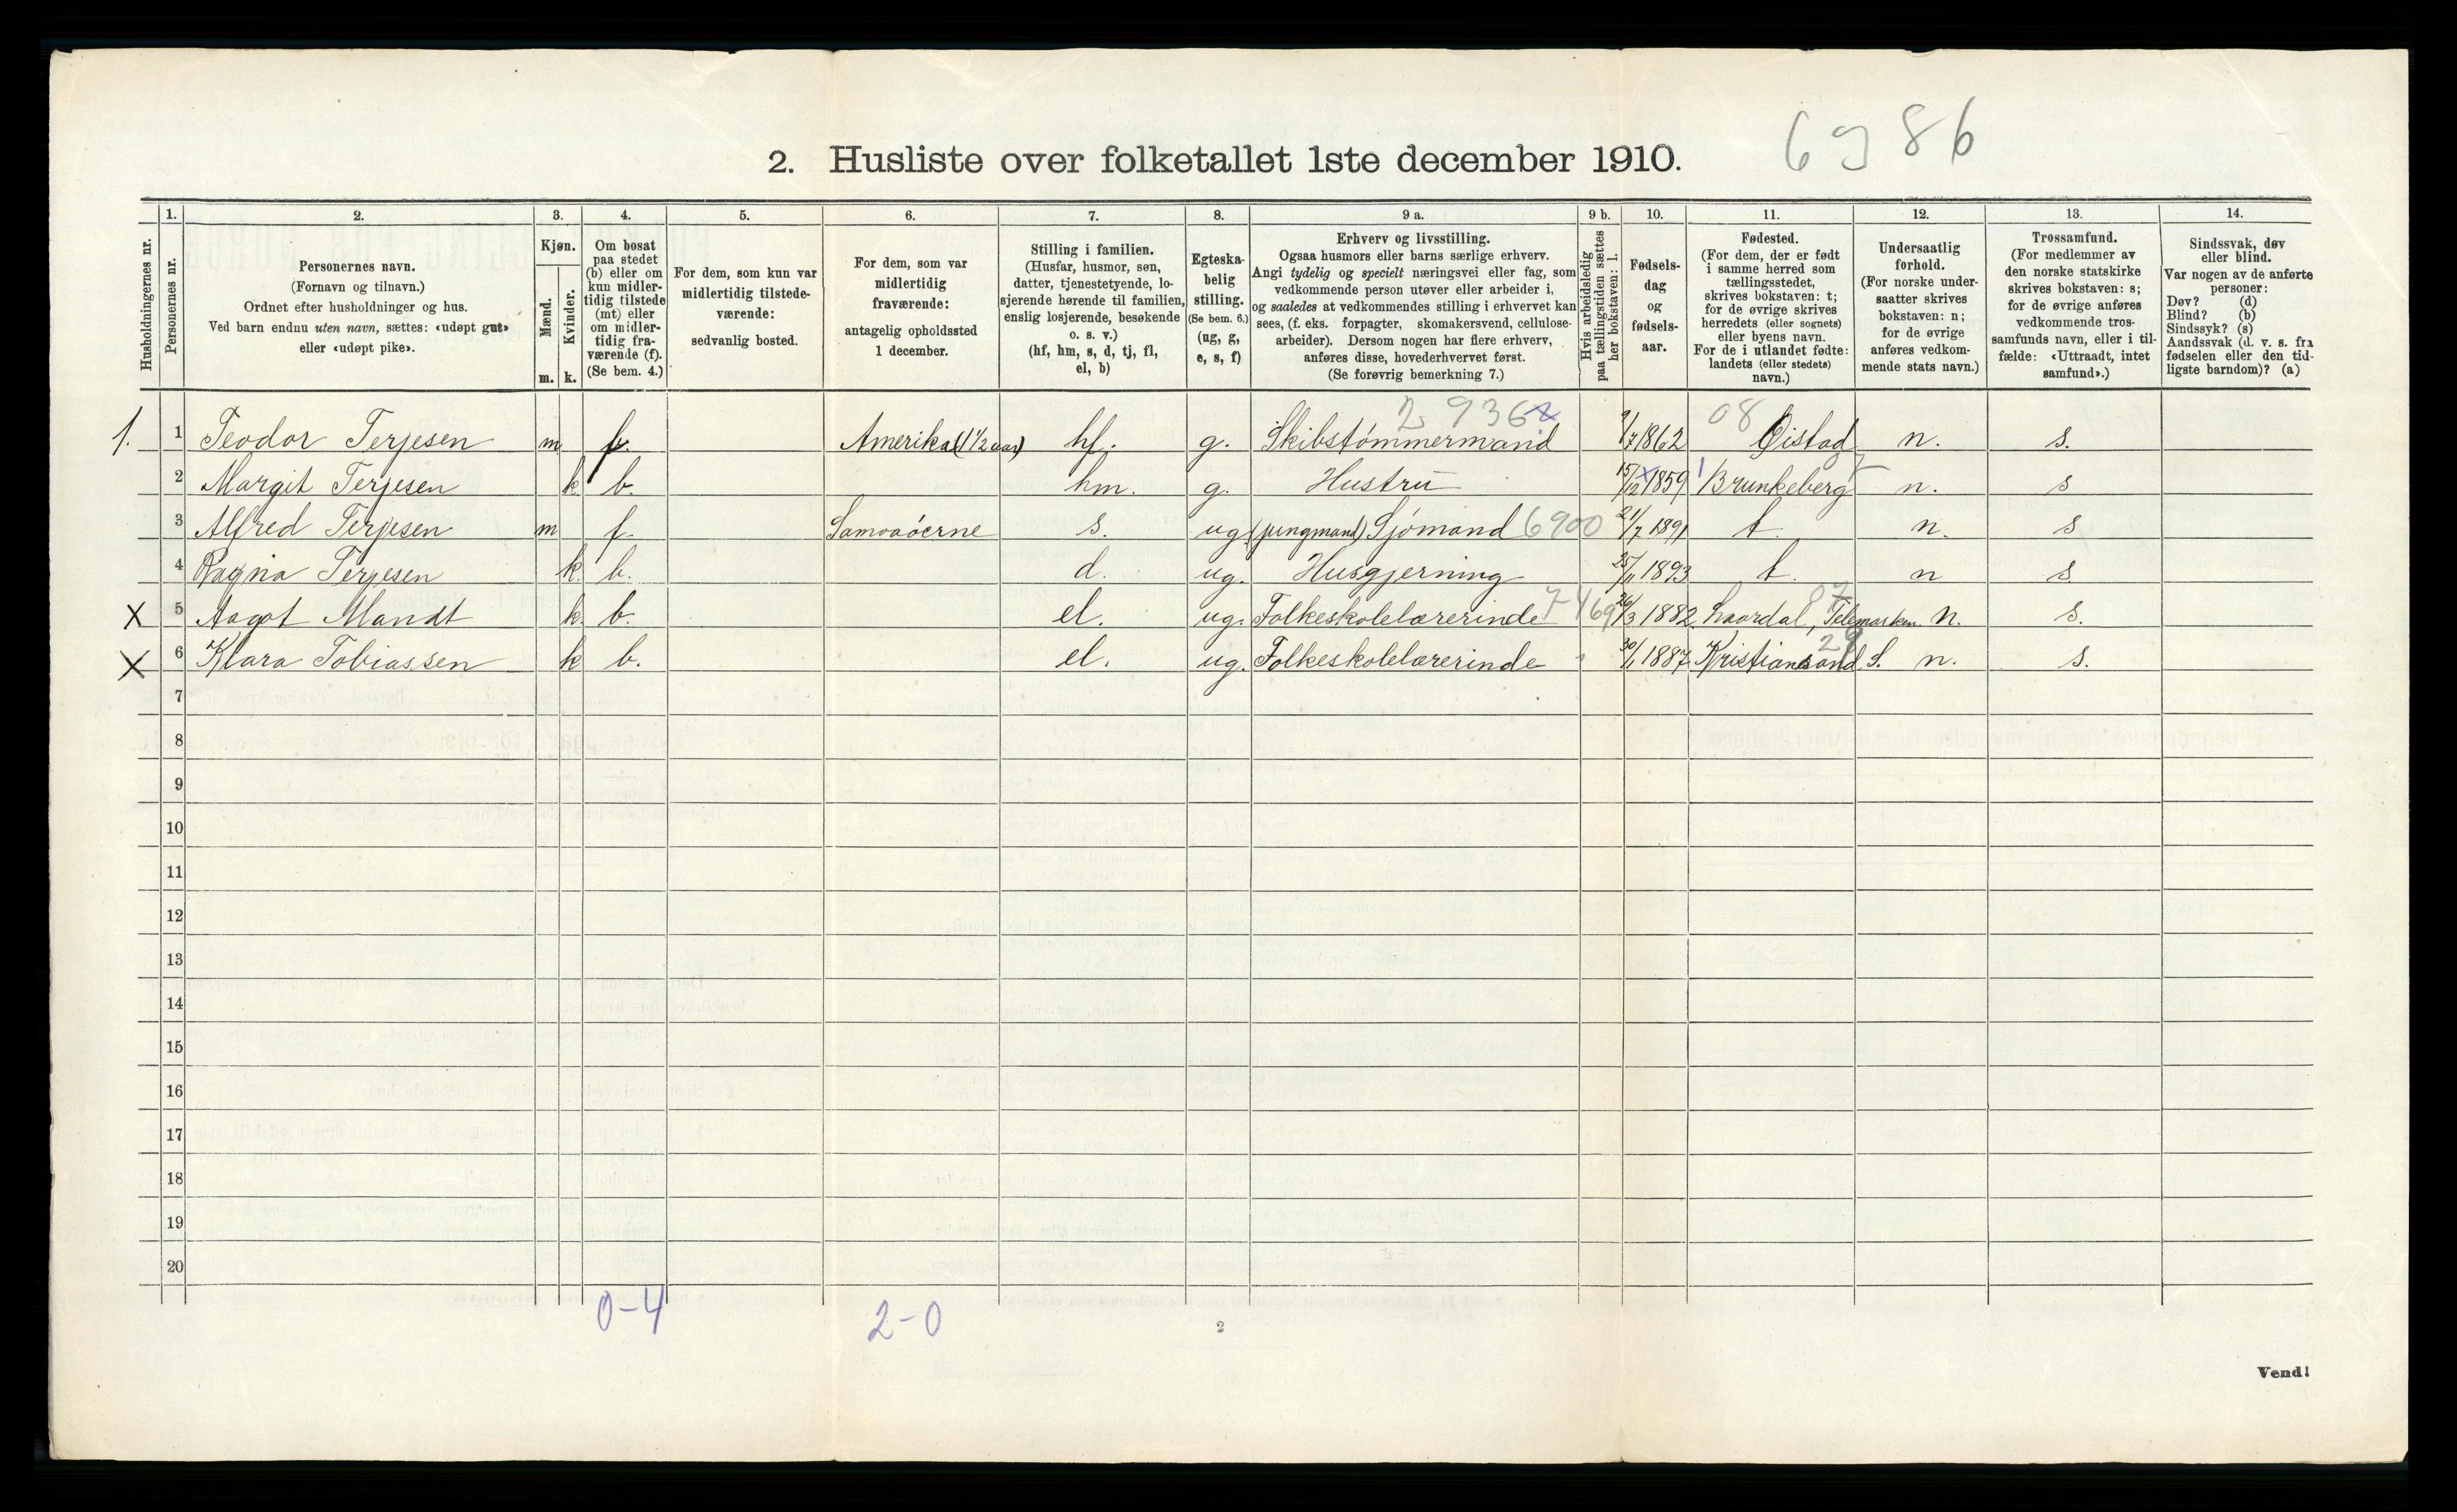 6986
2. Husliste over folketallet 1ste december 1910.
Husholdningernes nr.
1.
Personernes nr.
2.
Personernes navn.
(Fornavn og tilnavn.)
Ordnet efter husholdninger og hus.
Ved barn endnu uten navn, sættes: «udøpt gut»
eller «udøpt pike».
3.
Kjøn.
Mænd.
Kvinder.
m. k.
4.
Om bosat
paa stedet
(b) eller om
kun midler-
tidig tilstede
(mt) eller
om midler-
tidig fra-
værende (f).
(Se bem. 4.)
5.
For dem, som kun var
midlertidig tilstede-
værende:
sedvanlig bosted.
6.
For dem, som var
midlertidig
fraværende:
antagelig opholdssted
1 december.
7.
Stilling i familien.
(Husfar, husmor, søn,
datter, tjenestetyende, lo-
sjerende hørende til familien,
enslig losjerende, besøkende
o. s. v.)
(hf, hm, s, d, tj, fl,
el, b)
8.
Egteska-
belig
stilling.
(Se bem. 6.)
(ug, g,
e, s, f)
9 a.
Erhverv og livsstilling.
Ogsaa husmors eller barns særlige erhverv.
Angi tydelig og specielt næringsvei eller fag, som
vedkommende person utøver eller arbeider i,
og saaledes at vedkommendes stilling i erhvervet kan
sees, (f. eks. forpagter, skomakersvend, cellulose-
arbeider). Dersom nogen har flere erhverv,
anføres disse, hovederhvervet først.
(Se forøvrig bemerkning 7.)
9 b.
Hvis arbeidsledig
paa tællingstiden sættes
her bokstaven: l.
10.
Fødsels-
dag
og
fødsels-
aar.
11.
Fødested.
(For dem, der er født
i samme herred som
tællingsstedet,
skrives bokstaven: t;
for de øvrige skrives
herredets (eller sognets)
eller byens navn.
For de i utlandet fødte:
landets (eller stedets)
navn.)
12.
Undersaatlig
forhold.
(For norske under-
saatter skrives
bokstaven: n;
for de øvrige
anføres vedkom-
mende stats navn.)
13.
Trossamfund.
(For medlemmer av
den norske statskirke
skrives bokstaven: s;
for de øvrige anføres
vedkommende tros-
samfunds navn, eller i til-
fælde: «Uttraadt, intet
samfund».)
14.
Sindssvak, døv
eller blind.
Var nogen av de anførte
personer:
Døv? (d)
Blind? (b)
Sindssyk? (s)
Aandssvak (d. v. s. fra
fødselen eller den tid-
ligste barndom)? (a)
2 936 08
1. 1 Teodor Terjesen m f. Amerika (1 1/2 aar) hf. g. Skibstømmermand 9/7 1862 Øistad n. s.
2 Margit Terjesen k b. hm. g. Hustru 15/12 1859 Brunkeberg n. s
3 Alfred Terjesen m f. Samoaøerne s. ug (jungmand) Sjømand 6900 21/7 1891 t n. s
4 Ragna Terjesen k. b. d. ug. Husgjerning 25/11 1893 t. n s
X 5 Aagot Mandt k. b. el. ug. Folkeskolelærerinde 7469 26/3 1882 Laardal, Telemarken. n. s. 07
X 6 Klara Tobiassen k b. el. ug. Folkeskolelærerinde 30/1 1887 Kristiansand S. n. s. 29
7
8
9
10
11
12
13
14
15
16
17
18
19
20
0-4 2-0
2
Vend!